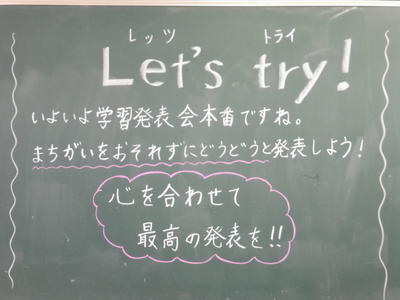 レッツ トライ
Let's try!
いよいよ学習発表会本番ですね。
まちがいをおそれずにどうどうと発表しよう!
心を合わせて
最高の発表を!!